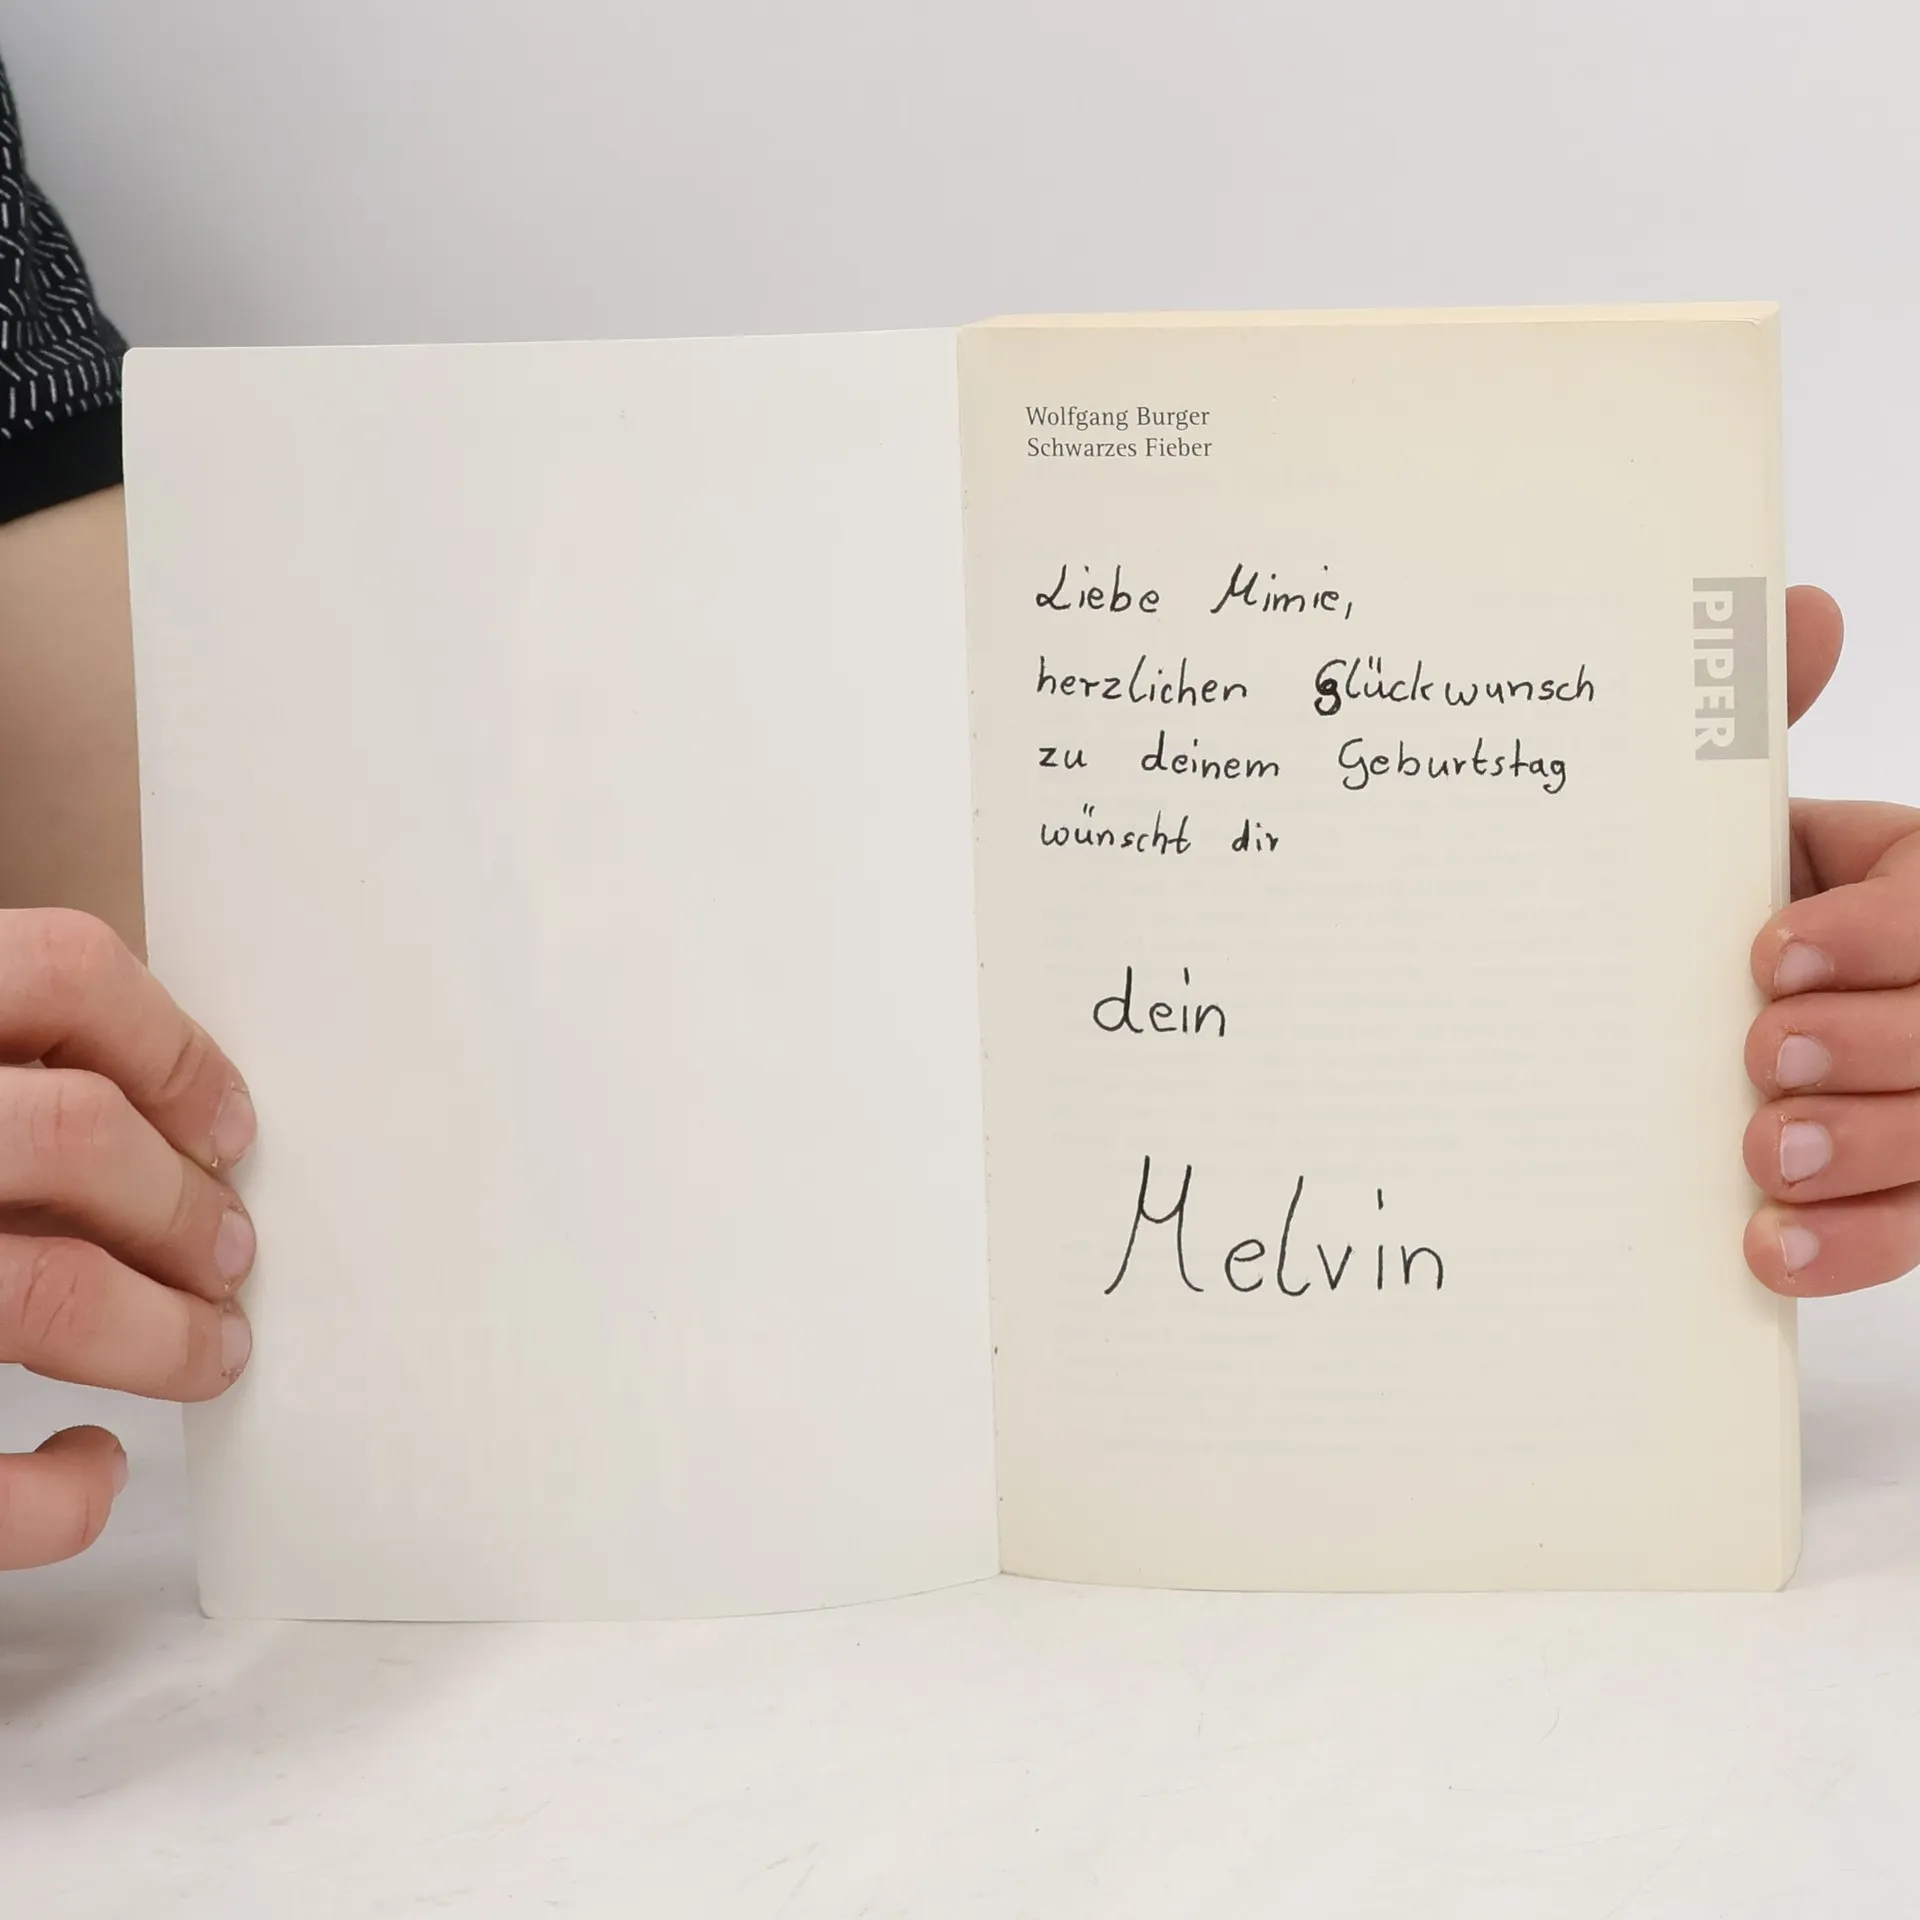 Wolfgang Burger
Schwarzes Fieber
Liebe Mimie,
herzlichen Glückwunsch
zu deinem Geburtstag
wünscht dir
dein
Melvin
PIPER